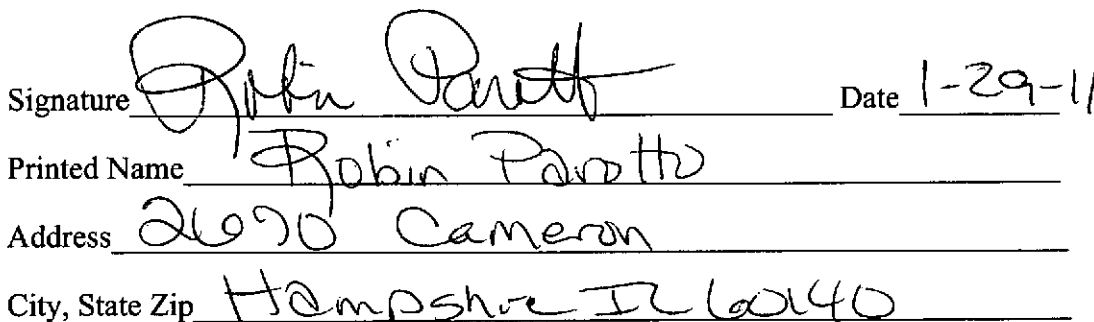 Signature Robin Parotto Date 1-29-11
Printed Name Robin Parotto
Address 2690 Cameron
City, State Zip Hampshire IL 60140